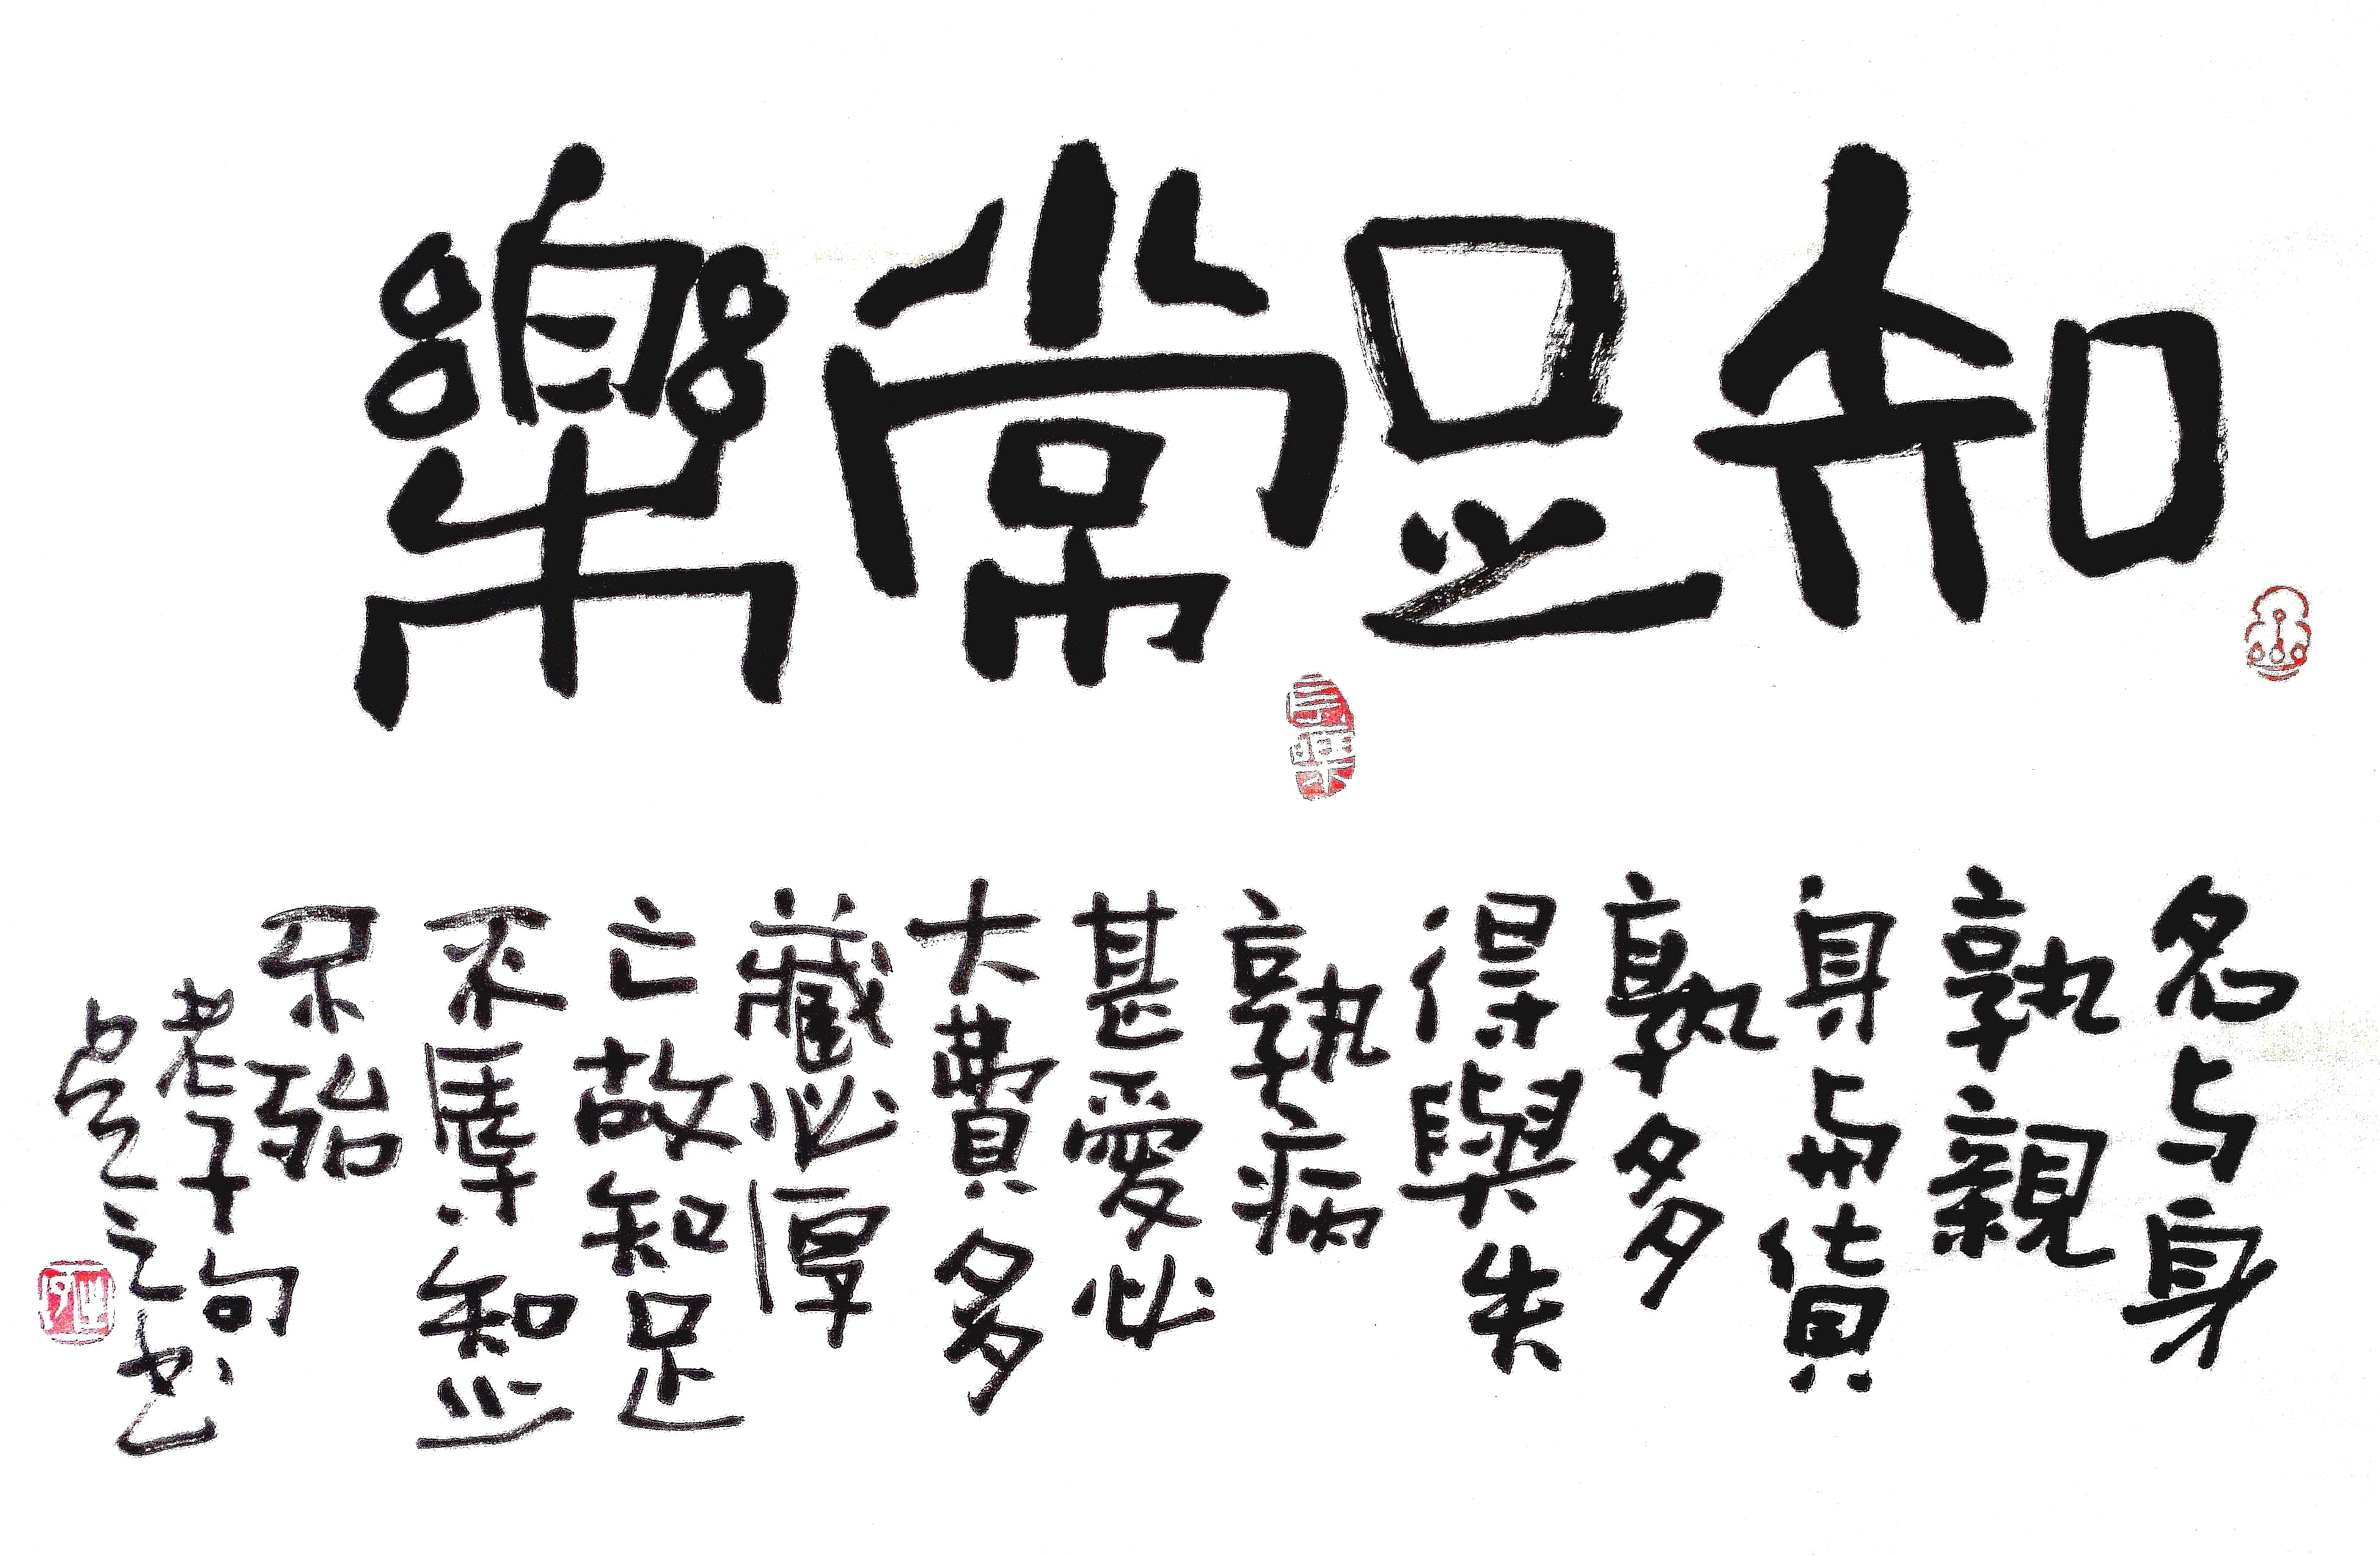 知足常樂
名与身
孰親
身与貨
孰多
得與失
孰病
甚愛必
大費多
藏必厚
亡故知足
不辱知止
不殆
老子句
之书